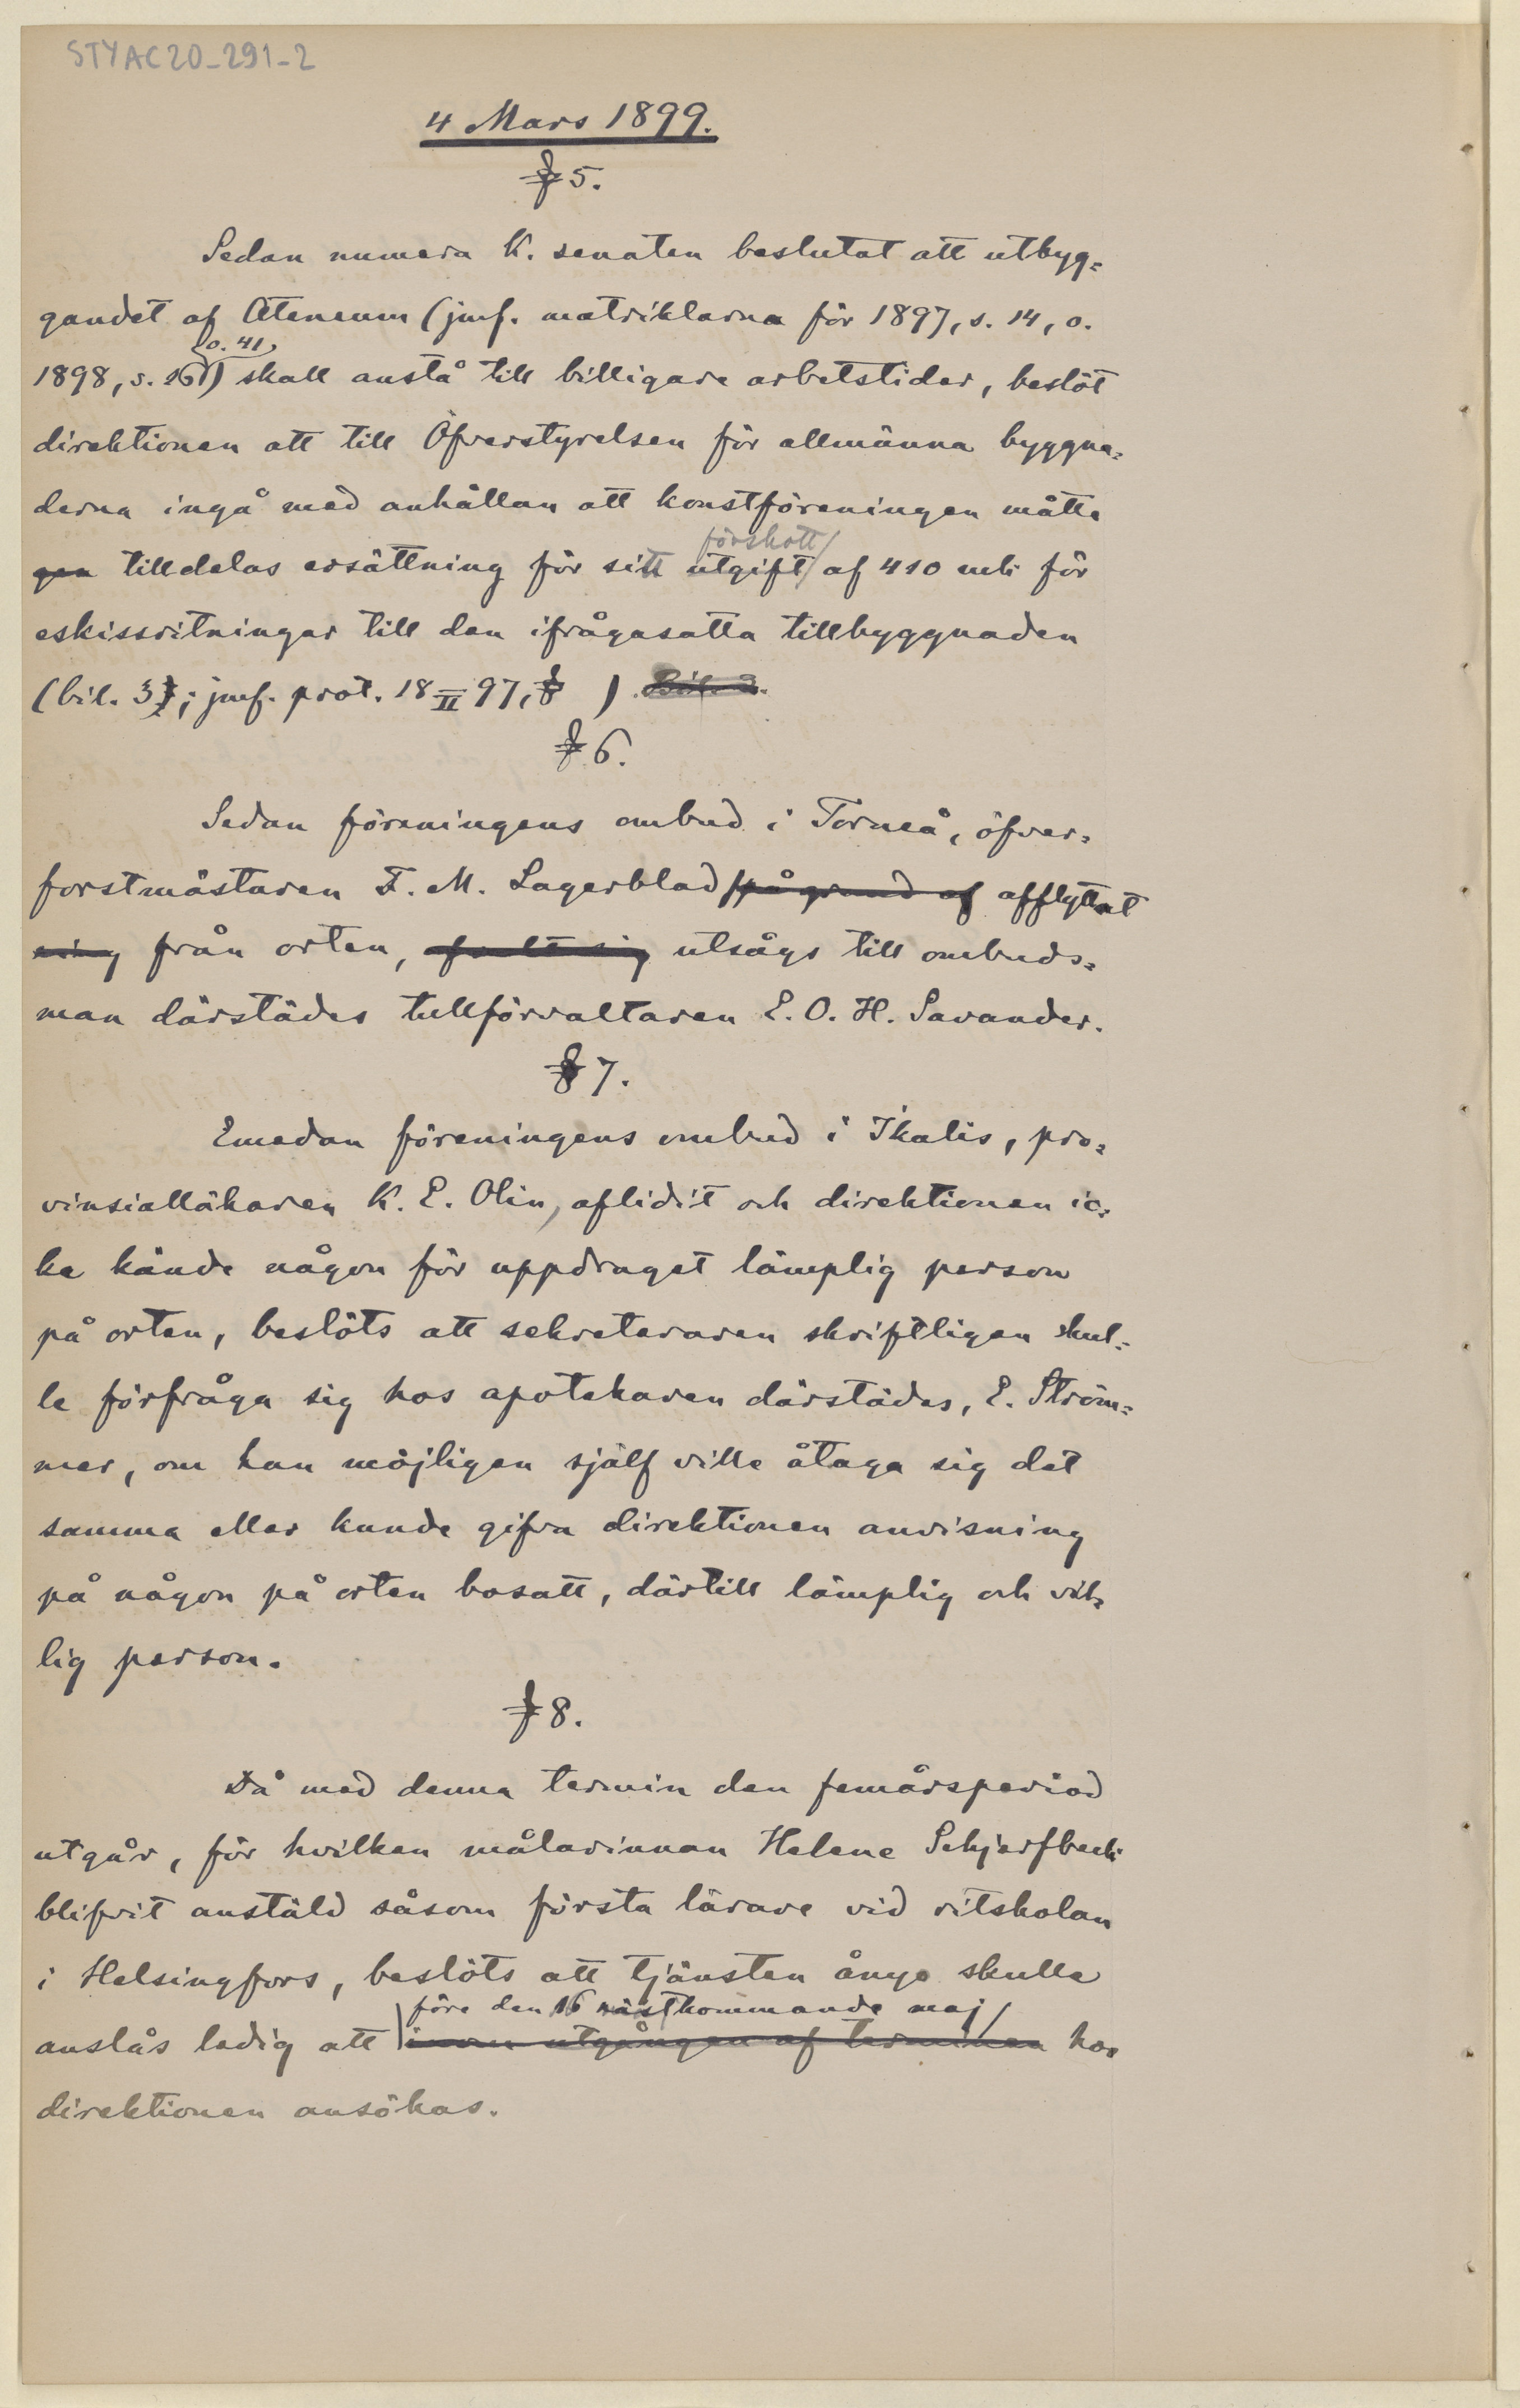 STYAC20_291_2
4 Mars 1899.
§ 5.
Sedan numera K. senaten beslutat att utbyg=
gandet af Ateneum (jmf. matriklarna för 1897, s. 14, o.
o. 41,
1898, s. 16) skall anstå till billigare arbetstider, beslöt
direktionen att till Öfverstyrelsen för allmänna byggna=
derna ingå med anhållan att konstföreningen måtte
förskott
gen tilldelas ersättning för sitt utgift af 410 mk för
eskissritningar till den ifrågasatta tillbyggnaden
(bil. 3; jmf. prot. 18 II 97, § ) Bil. 3.
§ 6.
Sedan föreningens ombud i Torneå, öfver=
forstmästaren F. M. Lagerblad på grund af afflyttat
ning från orten, utsågs till ombuds=
man därstädes tullförvaltaren E. O. H. Savander.
§ 7.
Emedan föreningens ombud i Ikalis, pro=
vinsialläkaren K. E. Olin, aflidit och direktionen ic=
ke kände någon för uppdraget lämplig person
på orten, beslöts att sekreteraren skriftligen skul=
le förfråga sig hos apotekaren därstädes, E. Ström=
mer, om han möjligen själf ville åtaga sig det
samma eller kunde gifva direktionen anvisning
på någon på orten bosatt, därtill lämplig och vil=
lig person.
§ 8.
Då med denna termin den femårsperiod
utgår, för hvilken målarinnan Helene Schjerfbeck
blifvit anstäld såsom första lärare vid ritskolan
i Helsingfors, beslöts att tjänsten ånyo skulle
före den 16 nästkommande maj
anslås ledig att inom utgången af terminen hos
direktionen ansökas.